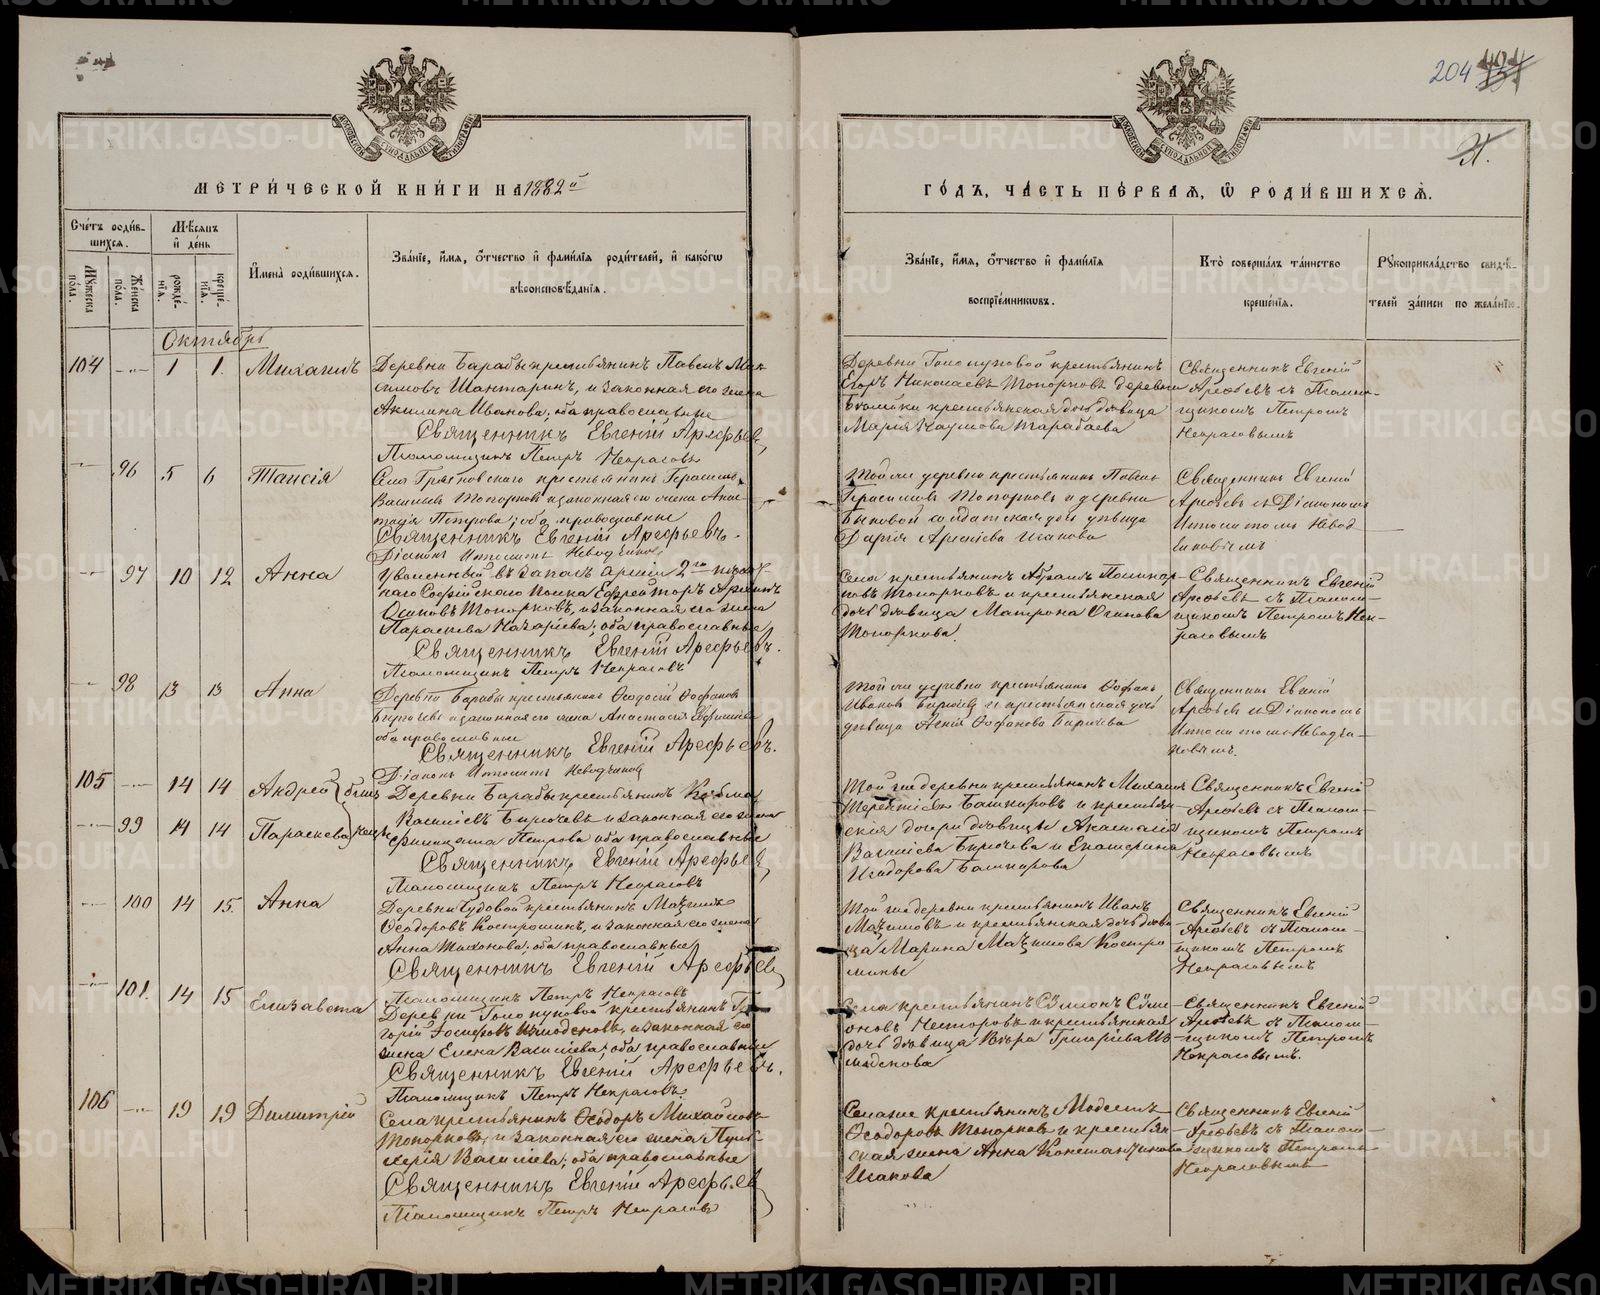 204
МЕТРИ́ЧЕСКОЙ КНИ́ГИ НА 1882й
ГО́ДЪ, ЧА́СТЬ ПЕ́РВАЯ, Ѡ РОДИ́ВШИХСЯ.
Сче́тъ роди́в-
шихся.
Мѣсяцъ
и де́нь
Имена̀ роди́вшихся.
Зва́нїе, и́мя, о́тчество и фами́лїя роди́телей, и како́гѡ
вѣроисповѣ́данїя.
Му́жеска по́ла.
Же́нска по́ла.
рожде́-
нїя.
креще́-
нїя.
Зва́нїе, и́мя, о́тчество и фами́лїя
воспрїе́мниковъ.
Кто̀ соверша́лъ та́инство
креще́нїя.
Рукоприкла́дство свидѣ́-
телей за́писи по жела́нїю.
Октябрь
104 1 1. Михаилъ
Деревни Барабы крестьянинъ Павелъ Мак-
симовъ Шантаринъ, и законная его жена
Акилина Иванова, оба православные
Священникъ Евгеній Арефьевъ,
Псаломщикъ Петръ Некрасовъ
Егоръ Николаевъ Топорковъ деревни
крестьянская дочь дѣвица
Марія Наумова Тарабаева
Священникъ Евгеній
Арефьевъ съ Псалом-
щикомъ Петромъ
Некрасовымъ
96 5 6 Таисія
Села Грязновскаго крестьянинъ Герасимъ
Васильевъ Топорковъ и законная его жена Анас-
тасія Петрова; оба православные
Священникъ Евгеній Арефьевъ.
Діаконъ Ипполитъ Неводчиковъ
Той же деревни крестьянинъ Павелъ
Герасимовъ Топорковъ и деревни
Быковой солдатская дочь дѣвица
Дарія Арсеніева Исакова
Священникъ Евгеній
Арефьевъ съ Діакономъ
Ипполитомъ Невод-
чиковымъ
97 10 12 Анна
Уволенный въ запасъ арміи 2го пѣхот-
наго Софійскаго полка Ефрейторъ
Осиповъ Топорковъ, и законная его жена
Параскева Назаріева; оба православные
Священникъ Евгеній Арефьевъ.
Псаломщикъ Петръ Некрасовъ
Села крестьянинъ Абрамъ Поликар-
повъ Топорковъ и крестьянская
дочь дѣвица Матрона Осипова
Топоркова.
Священникъ Евгеній
Арефьевъ съ Псалом-
щикомъ Петромъ Нек-
расовымъ
98 13 13 Анна
Деревни Барабы крестьянинъ Ѳеодосій Ѳеофановъ
Бирючевъ и законная его жена Анастасія Ефимова
оба православные
Священникъ Евгеній Арефьевъ.
Діаконъ Ипполитъ Неводчиковъ
Той же деревни крестьянинъ Ѳеофанъ
Ивановъ Бирючевъ и крестьянская дочь
дѣвица Ксенія Ѳеофанова Бирючева
Священникъ Евгеній
Арефьевъ съ Діакономъ
Ипполитомъ Неводчи-
ковымъ.
105 14 14 Андрей
99 14 14 Параскева
близ
нецы
Деревни Барабы крестьянинъ Козьма
Васильевъ Бирючевъ и законная его жена
Филицата Петрова оба православные
Священникъ Евгеній Арефьевъ,
Псаломщикъ Петръ Некрасовъ
Той же деревни крестьянинъ Михаилъ
Терентіевъ Башкировъ и крестьян-
скія дочери дѣвицы Анастасія
Васильева Бирючева и Екатерина
Исидорова Башкирова
Священникъ Евгеній
Арефьевъ съ Псалом-
щикомъ Петромъ
Некрасовымъ
100 14 15. Анна
Деревни Чудовой крестьянинъ Максимъ
Ѳеодоровъ Костроминъ, и законная его жена
Анна Тихонова; оба православные
Священникъ Евгеній Арефьевъ
Псаломщикъ Петръ Некрасовъ
Той же деревни крестьянинъ Иванъ
Максимовъ и крестьянская дочь дѣви-
ца Марина Максимова Костро-
мины
Священникъ Евгеній
Арефьевъ съ Псалом-
щикомъ Петромъ
Некрасовымъ
101. 14 15 Елизавета
Деревни Голопуповой крестьянинъ Гри-
горій Іосифовъ Измоденовъ, и законная его
жена Елена Васильева; оба православные
Священникъ Евгеній Арефьевъ.
Псаломщикъ Петръ Некрасовъ.
Села крестьянинъ Симеонъ Симе-
оновъ Нестеровъ и крестьянская
дочь дѣвица Вѣра Григоріева Из-
моденова
Священникъ Евгеній
Арефьевъ съ Псалом-
щикомъ Петромъ
Некрасовымъ.
106 19 19 Димитрій
Села крестьянинъ Ѳеодоръ Михайловъ
Топорковъ, и законная его жена Пуль-
херія Васильева; оба православные
Священникъ Евгеній Арефьевъ
Псаломщикъ Петръ Некрасовъ
Села же крестьянинъ Модестъ
Ѳеодоровъ Топорковъ и крестьян-
ская жена Анна Константинова
Исакова
Священникъ Евгеній
Арефьевъ съ Псалом-
щикомъ Петромъ
Некрасовымъ
METRIKI.GASO-URAL.RU